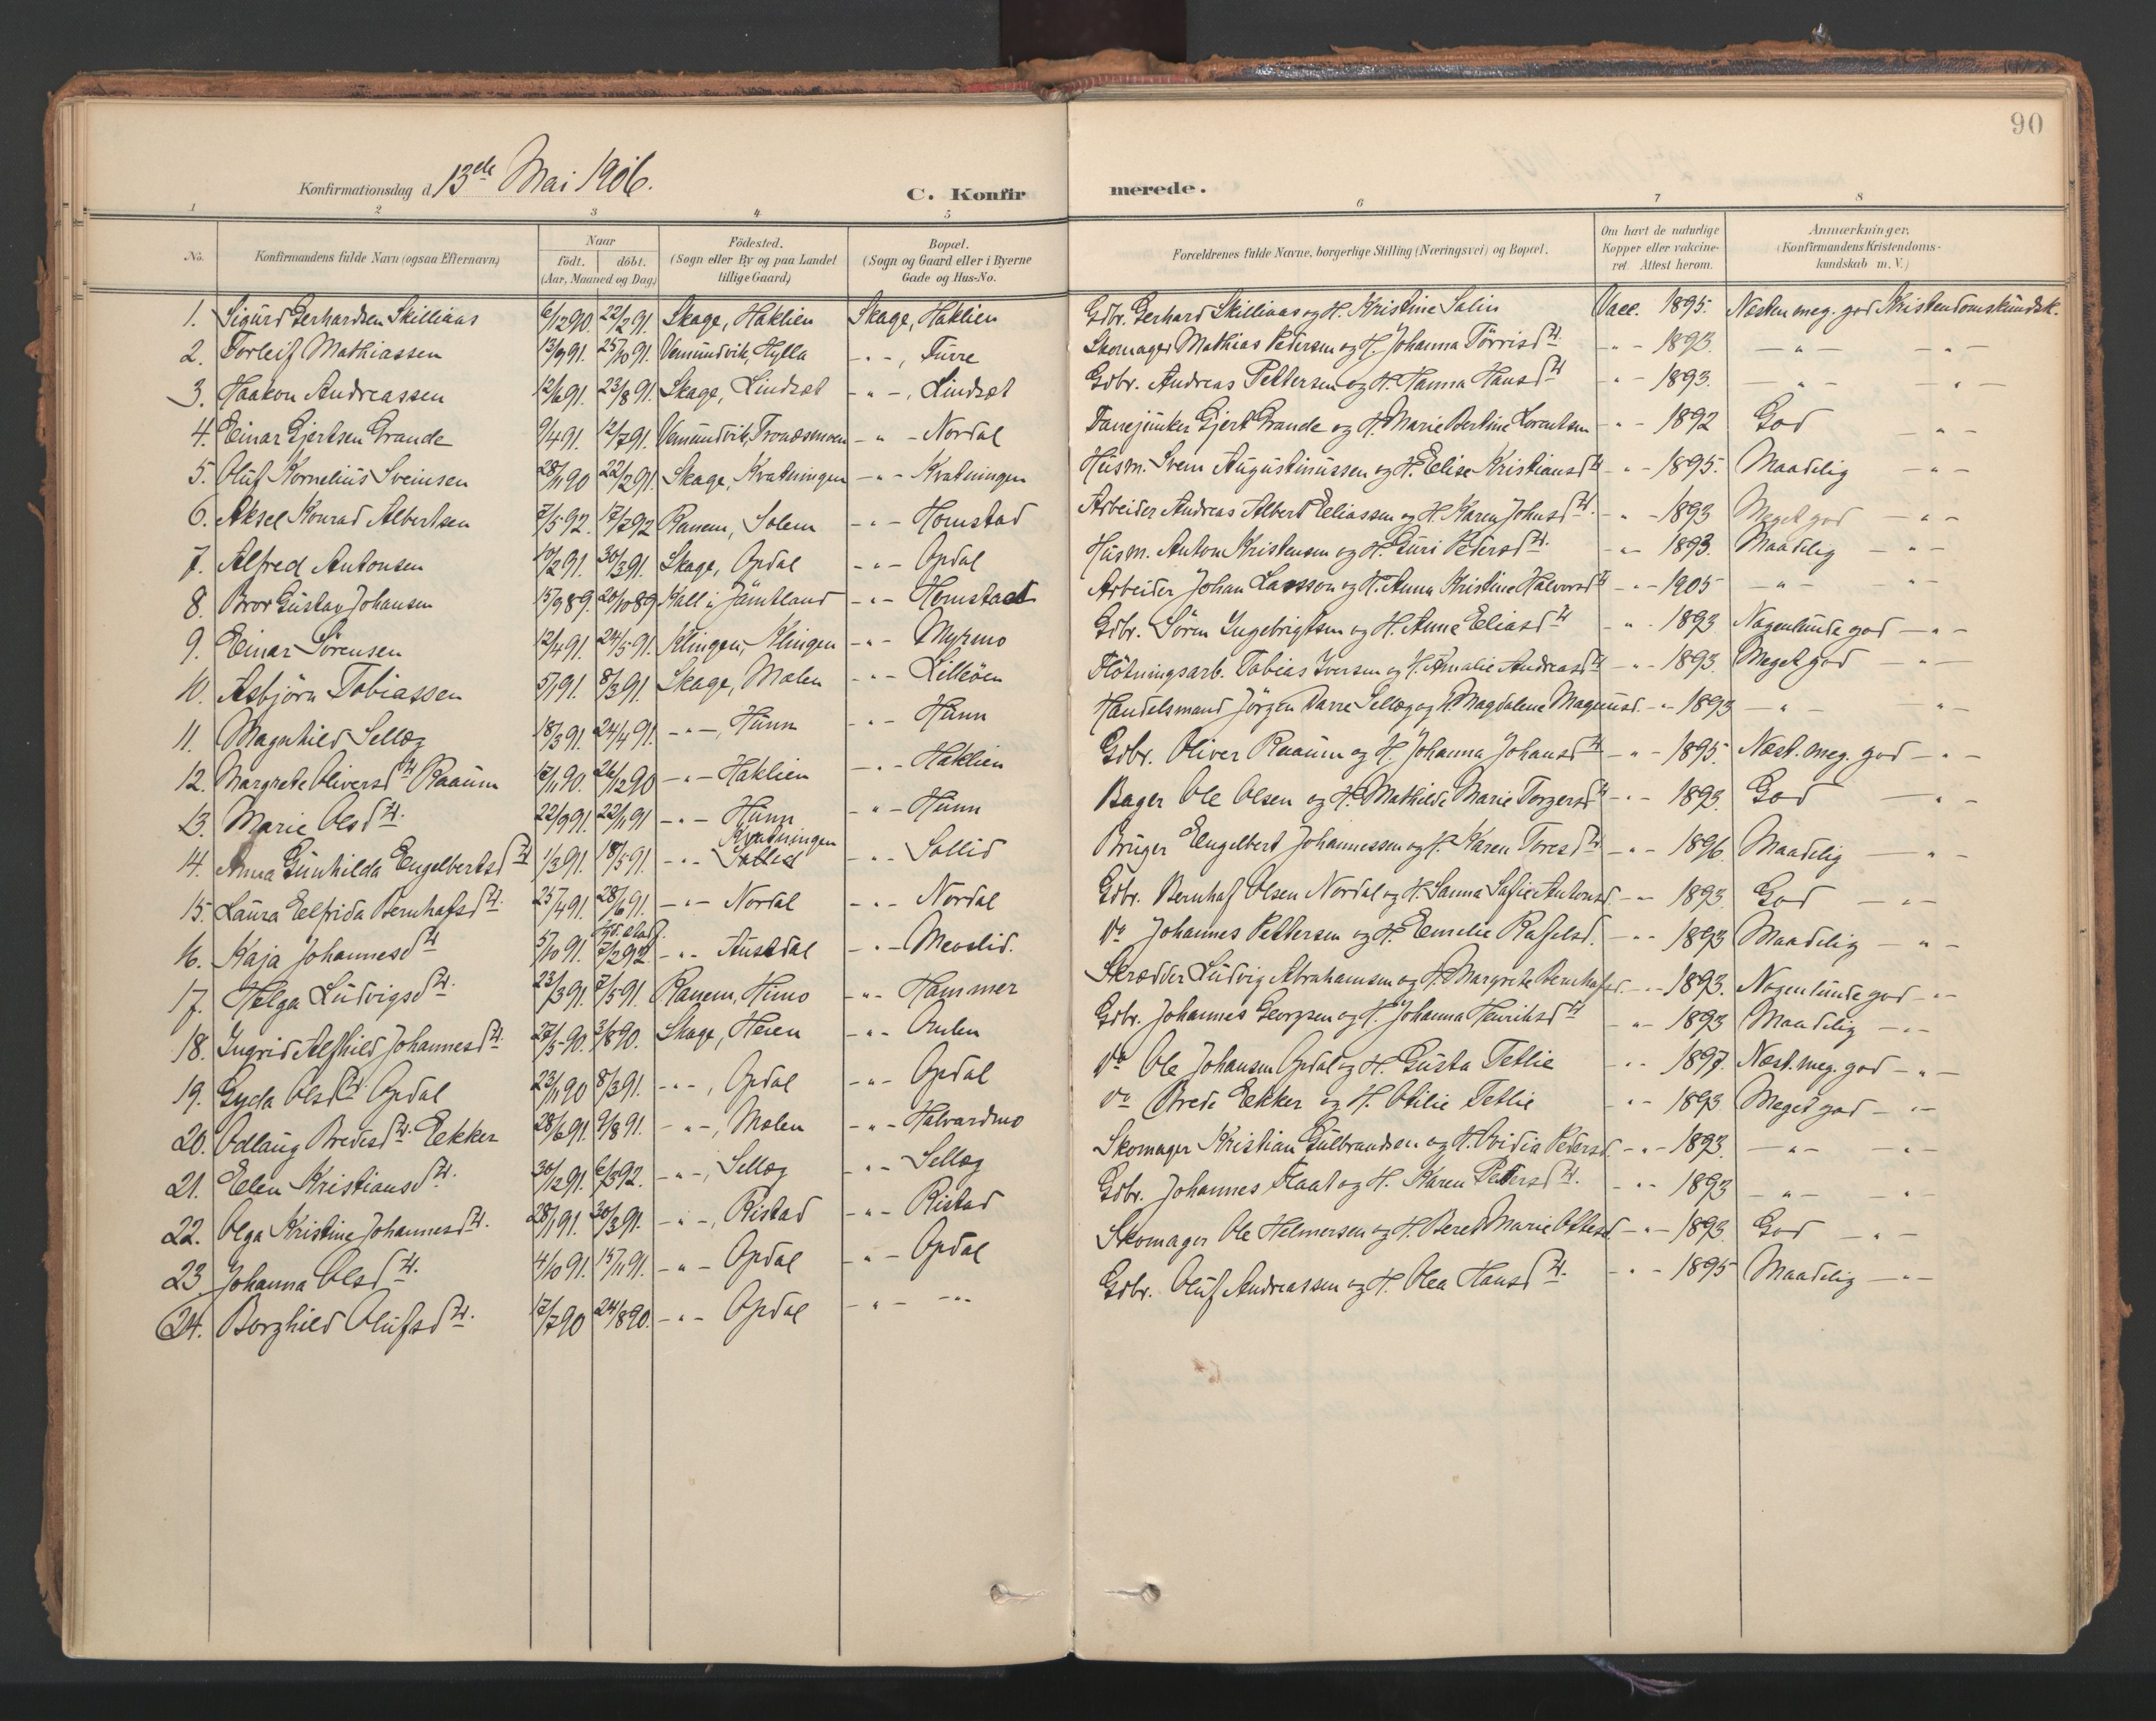 90
Konfirmationsdag d. 13de Mai 1906.
C. Konfirmerede.
1 2 3 4 5 6 7 8
No. Konfirmandens fulde Navn (ogsaa Efternavn) Naar født. døbt. (Aar, Maaned og Dag) Fødested. (Sogn eller By og paa Landet tillige Gaard) Bopæl. (Sogn og Gaard eller i Byerne Gade og Hus-No. Forældrenes fulde Navne, borgerlige Stilling (Næringsvei) og Bopæl. Om havt de naturlige Kopper eller vakcineret. Attest herom. Anmærkninger, (Konfirmandens Kristendomskundskab m. V.)
1. Sigurd Gerhardsen Skilliaas 6/12 90 22/2 91. Skage, Haklien Skage, Haklien Gdbr. Gerhard Skilliaas og H. Kristine Salin Vacc. 1895. Næsten meg. god Kristendomskundsk.
2. Torleif Mathiassen 13/9 91. 25/10 91. Vemundvik, Hylla - " -, Furre Skomager Mathias Pedersen og H. Johanna Tørrisdtr. - " - 1893. - " - - " -
3. Haakon Andreassen 12/6 91. 23/8 91. Skage, Lindset - " -, Lindset Gdbr. Andreas Pettersen og H. Hanna Hansdtr " - 1893. - " - - " -
4. Einar Gjertsen Grande 9/4 91. 12/7 91. Vemundvik, Tronæsmoen - " - Nordal Fanejunker Gjert Grande og H. Marie Bertine Lorentsen - " - 1892 God - " -
5. Oluf Kornelius Sveinsen 28/11 90 22/2 91. Skage, Kvatningen - " - Kvatningen Husm. Svein Augustinussen og H. Elise Kristiansdtr - " - 1895. Maadelig - " -
6. Aksel Konrad Albertsen 7/5 92. 17/7 92 Ranem, Solem - " - Homstad Arbeider Andreas Albert Eliassen og H. Karen Johnsdtr. - " - 1893 Meget god - " -
7. Alfred Antonsen 10/2 91. 30/3 91. Skage, Opdal - " - Opdal Husm. Anton Kristensen og H. Guri Pedersdtr. - " - 1893. Maadelig - " -
8. Bror Gustav Johansen 15/9 89. 20/10 89 Kall i Jämtland - " - Homstad Arbeider Johan Larsson og H. Anna Kristine Halvorsdtr - " - 1905 - " - - " -
9. Einar Sørensen 12/4 91. 24/5 91. Klingen, Klingen - " - Myrmo Gdbr. Sören Ingebrigtsen og H. Anne Eliasdtr - " - 1893 Nogenlunde god - " -
10. Asbjörn Tobiassen 5/1 91. 8/3 91. Skage, Molen - " - Lilleöen Flötningsarb. Tobias Iversen og H. Amalie Andreasdtr - " - 1893. Meget god - " -
11. Magnhild Sellæg 18/3 91. 24/4 91. - " -, Hunn - " - Hunn Handelsmand Jörgen Darre Sellæg og H. Magdalene Magnusd. - " - 1893 - " - " -
12. Margrete Oliversdtr Raaum 17/11 90. 26/12 90 - " - Haklien - " - Haklien Gdbr. Oliver Raaum og H. Johanna Johansdtr - " - 1895. Næst. meg. god - " -
13. Marie Olsdtr. 22/9 91. 22/11 91 - " - Hunn " - Hunn Bager Ole Olsen og H. Mathilde Marie Torgersdtr - " - 1893. God - " -
14. Anna Gunhilda Engelbertsdtr 1/3 91. 18/5 91. - " - Kvatningen Sollid - " - Sollid Bruger Engelbert Johannessen og H. Karen Toresdtr. - " - 1896. Maadelig - " -
15. Laura Elfrida Bernhafsdtr. 25/4 91. 28/6 91. - " - Nordal - " - Nordal Gdbr. Bernhaf Olsen Nordal og H. Sanna Sofie Antonsd. - " - 1893. God - " -
16. Kaja Johannesdtr 5/10 91. 7/2 92. - " - Austdal - " - Mevslid. Do Johannes Pettersen og H. Emelie Rafelsd. - " - 1893 Maadelig - " -
17. Helga Ludvigsdtr. 23/3 91. 7/5 91. Ranem, Himo - " - Hammer Skrædder Ludvig Abrahamsen og H. Margrete Bernhafsd. - " - 1893. Nogenlunde god - " -
18. Ingrid Alfhild Johannesdtr. 27/5 90. 3/8 90. Skage, Heien - " - Gdbr. Johannes Georgsen og H. Johanna Henriksdtr - " - 1893 Maadelig - " -
19. Gyda Olsdtr. Opdal 23/11 90 8/3 91. - " -, Opdal - " - Opdal Do Ole Johansen Opdal og H. Gusta Tetlie " - 1897. Næst. meg. god - " -
20. Odlaug Bredesdtr. Ekker 28/6 91. 9/8 91. - " -, Molen - " - Halvardmo Do Brede Ekker og H. Otilie Tetlie - " - 1893 Meget god - " -
21. Elen Kristiansdtr. 30/12 91. 6/3 92. - " -, Sellæg - " - Sellæg Skomager Kristian Gulbrandsen og H. Ovidia Pedersd. - " - 1893. - " - - " -
22. Olga Kristine Johannesdtr. 28/1 91. 30/3 91. - " -, Ristad - " - Ristad Gdbr. Johannes Flaat og H. Karen Pedersdtr. - " - 1893 - " - - " -
23. Johanna Olsdtr. 4/10 91. 15/11 91. - " - Opdal - " - Opdal Skomager Ole Helmersen og H. Beret Marie Ottesd. - " - 1893. God - " -
24. Borghild Olufsdtr. 17/7 90 24/8 90. - " - Opdal - " - - " - Gdbr. Oluf Andreassen og H. Olea Hansdtr. - " - 1895 Maadelig - " -